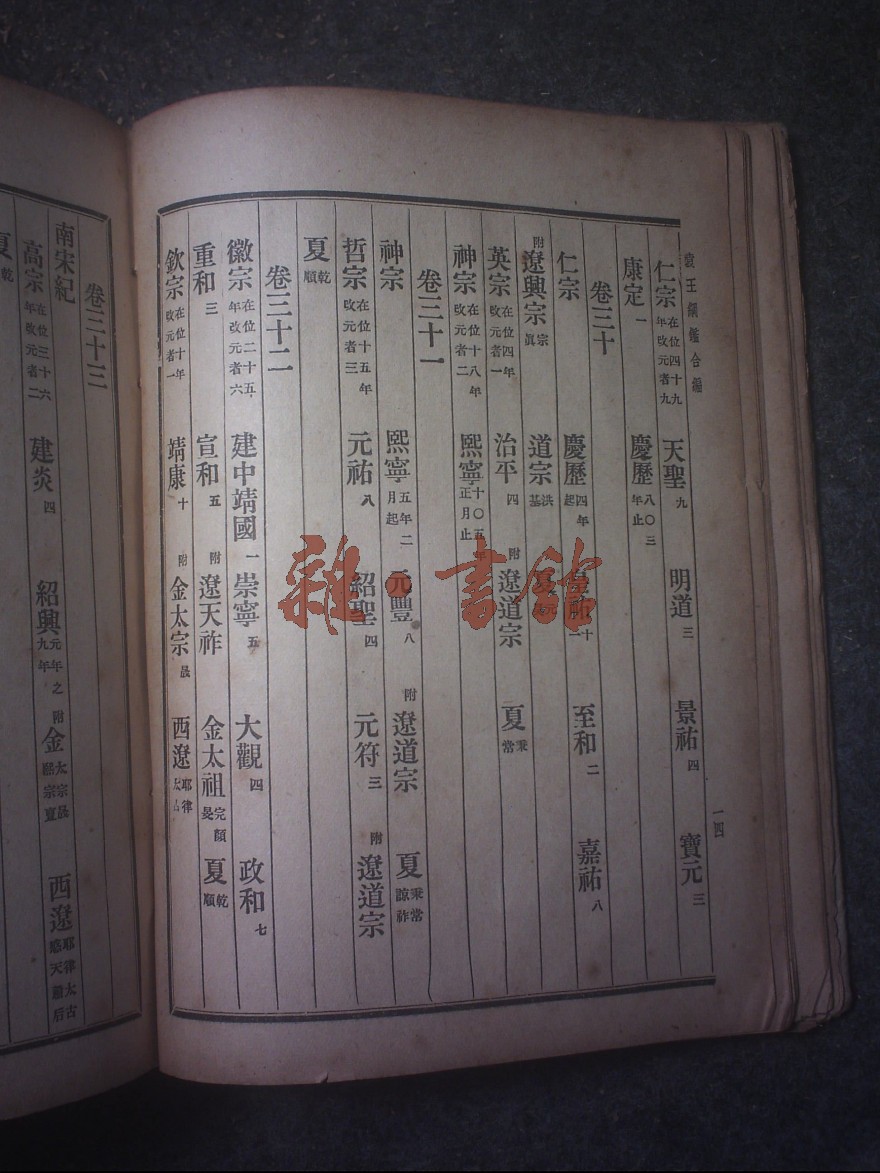 袁王綱鑑合編
一四
仁宗 在位四十九年改元者九 天聖 九 明道 三 景祐 四 寶元 三
康定 一 慶歷 八〇三年止
卷三十
仁宗 慶歷 四年起 至和 二 嘉祐 八
附遼興宗 宗眞 道宗 洪基
英宗 在位四年改元者一 治平 四 附遼道宗 夏 秉常
神宗 在位十八年改元者二 熙寧 十〇五年正月止
卷三十一
神宗 熙寧 五年二月起 元豐 八 附遼道宗 夏 秉常諒祚
哲宗 在位十五年改元者三 元祐 八 紹聖 四 元符 三 附遼道宗
夏 乾順
卷三十二
徽宗 在位二十五年改元者六 建中靖國 一 崇寧 五 大觀 四 政和 七
重和 三 宣和 五 附遼天祚 金太祖 完顏旻 夏 乾順
欽宗 在位十年改元者一 靖康 十 附金太宗 晟 西遼 耶律
卷三十三
南宋紀
高宗 在位三十六年改元者二 建炎 四 紹興 元年之九年 附金 太宗晟熙宗亶 西遼 耶律大古感天后
夏 乾順
雜·書館